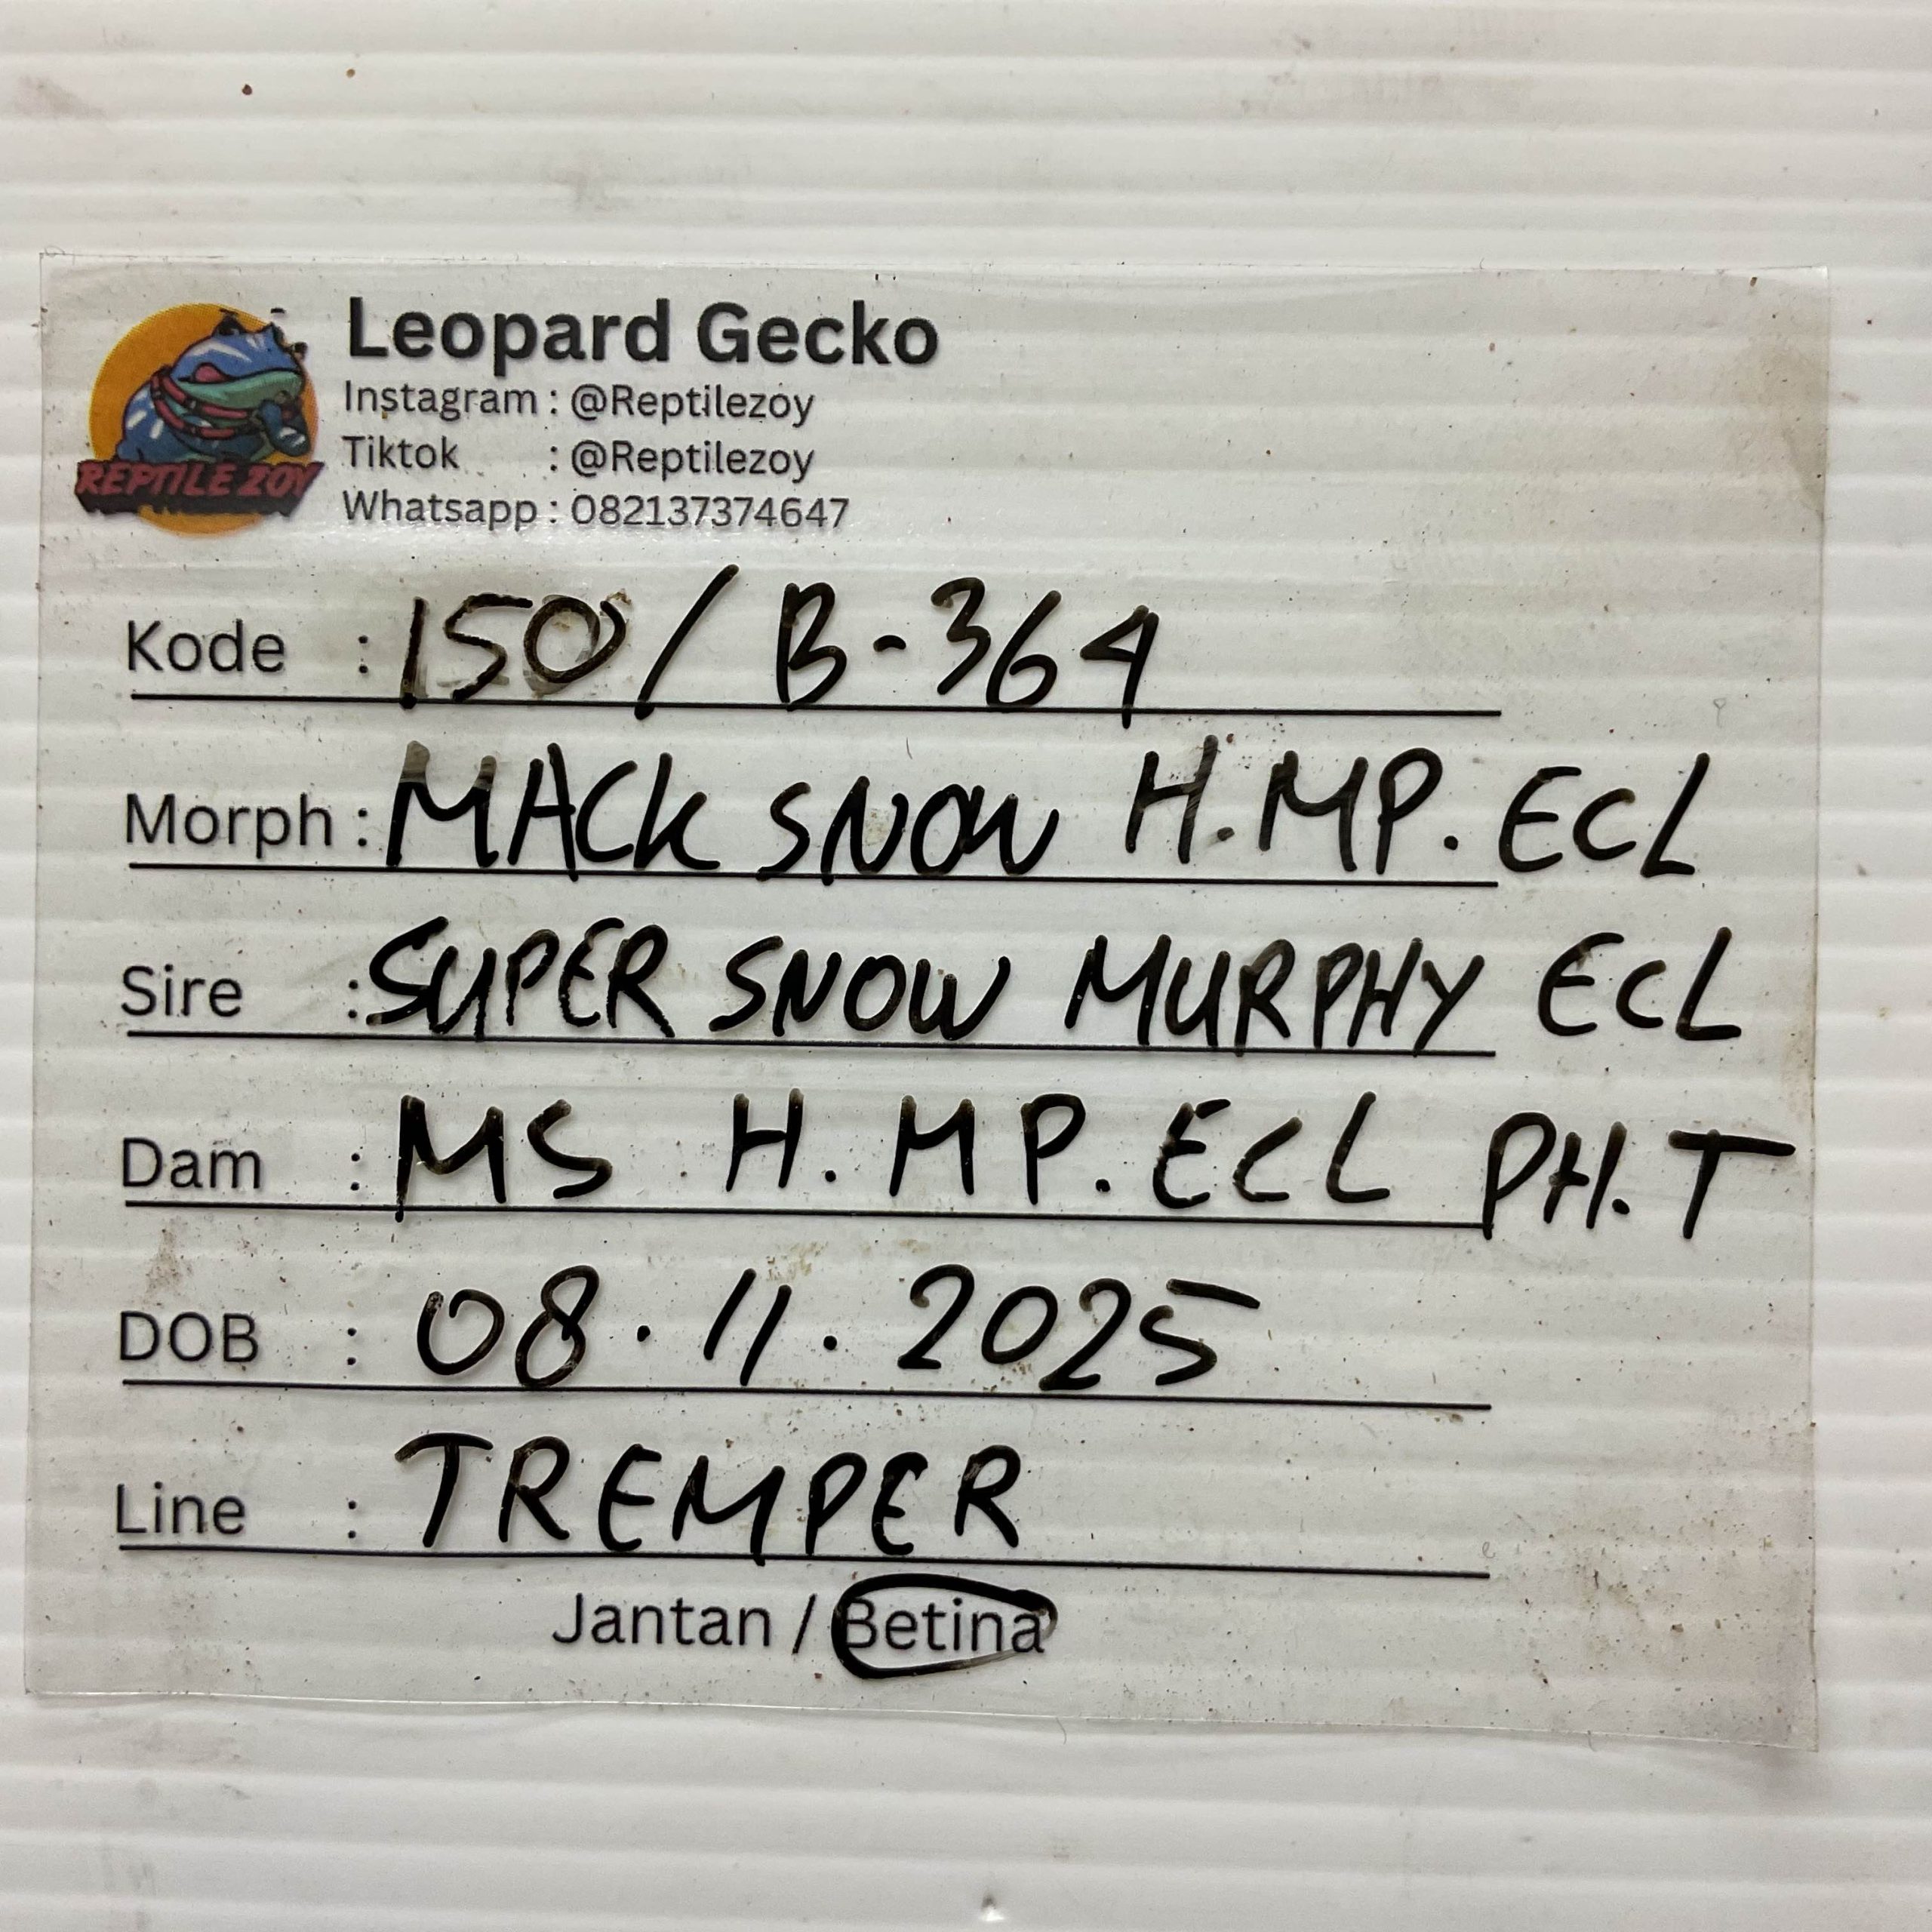 REPTILE ZOY
Leopard Gecko
Instagram : @Reptilezoy
Tiktok : @Reptilezoy
Whatsapp : 082137374647
Kode : 150/ B-364
Morph : MACK SNOW H.MP. ECL
Sire : SUPER SNOW MURPHY ECL
Dam : MS H. MP. ECL PH. T
DOB : 08. 11. 2025
Line : TREMPER
Jantan / Betina